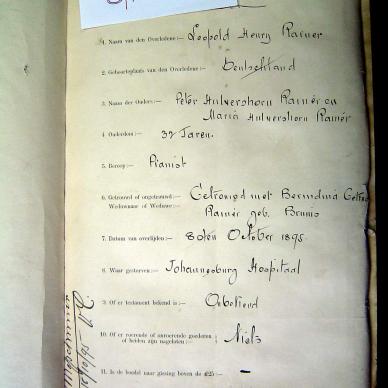 1. Naam van den Overledene:— Leopold Henry Ramer
2. Geboorteplaats van den Overledene:— Deutschland
3. Naam der Ouders:— Peter Hulvershorn Ramér en
Maria Hulvershorn Ramér
4 Ouderdom:— 32 Jaren.
5. Beroep:— Pianist
6. Getrouwd of ongetrouwd:— Getrouwd met
Weduwnaar of Weduwe:— Ramér geb. Bruns
7. Datum van overlijden:— 30sten October 1895
8. Waar gestorven:— Johannesburg Hospitaal
9. Of er testament bekend is:— Onbekend
10. Of er roerende of onroerende goederen
of beiden zijn nagelaten:— Niets
11. Is de boedel naar gissing boven de £25:— —